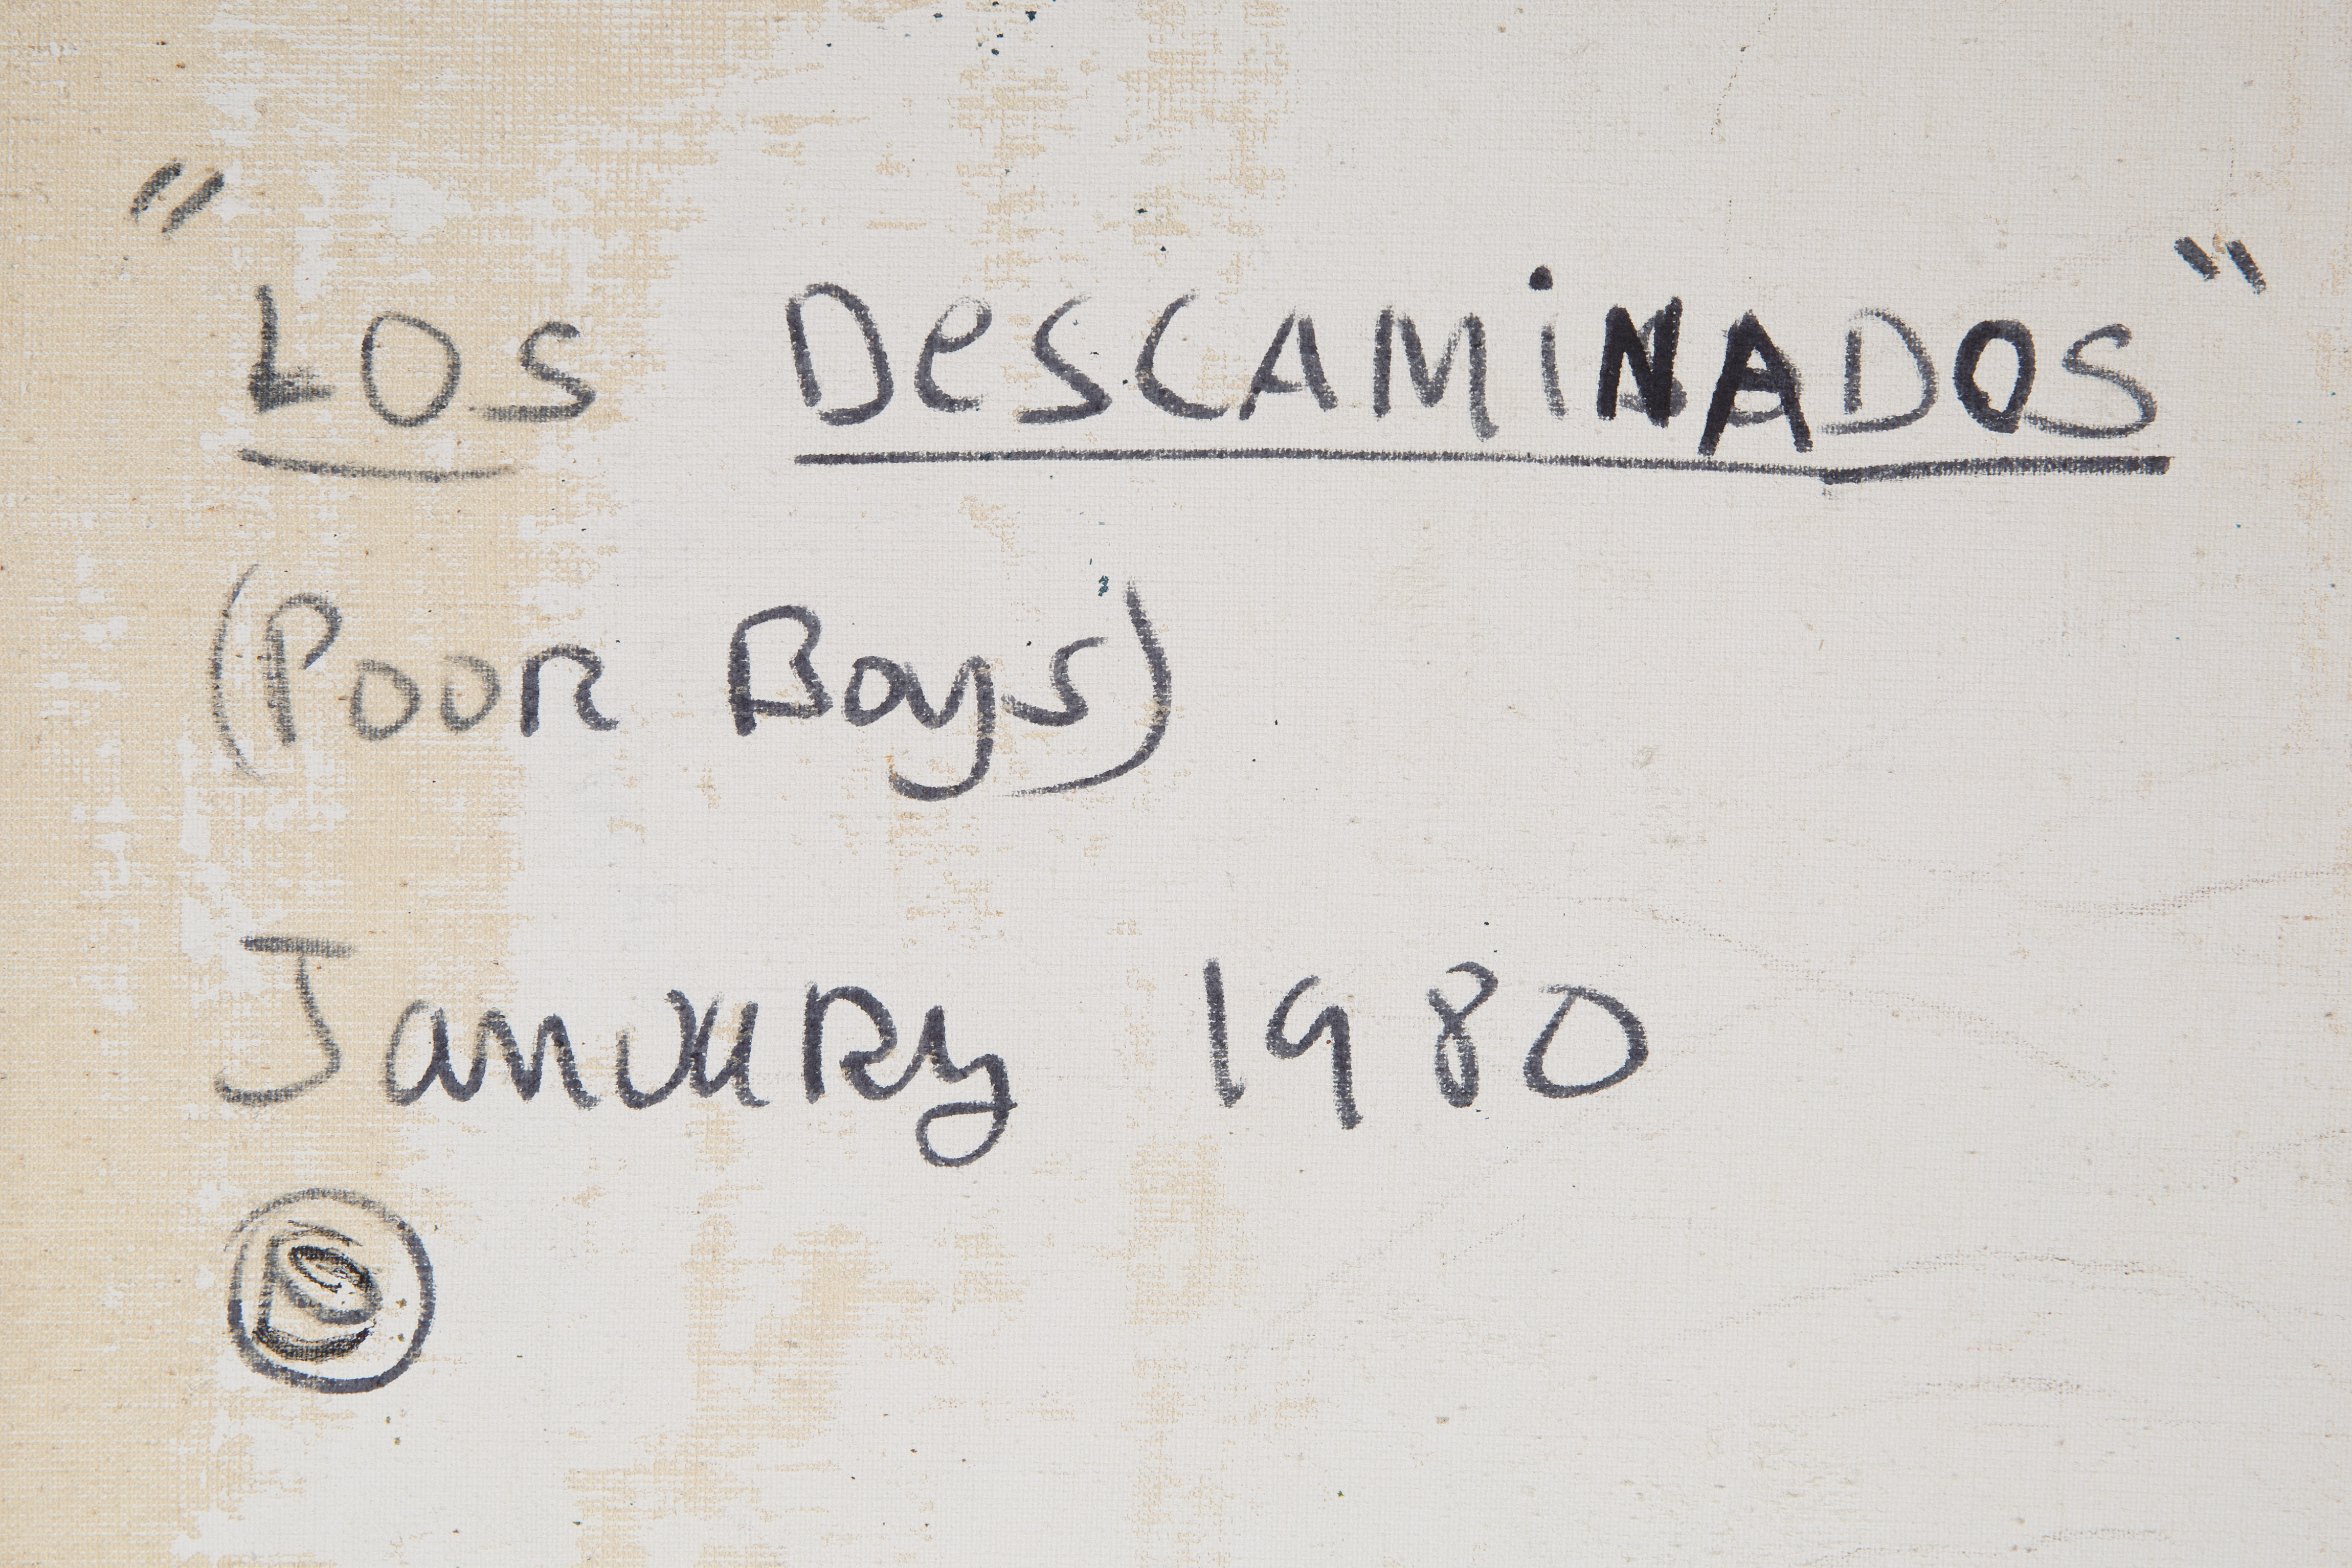 "LOS DeSCAMiNADOS"
(Poor Boys)
January 1980